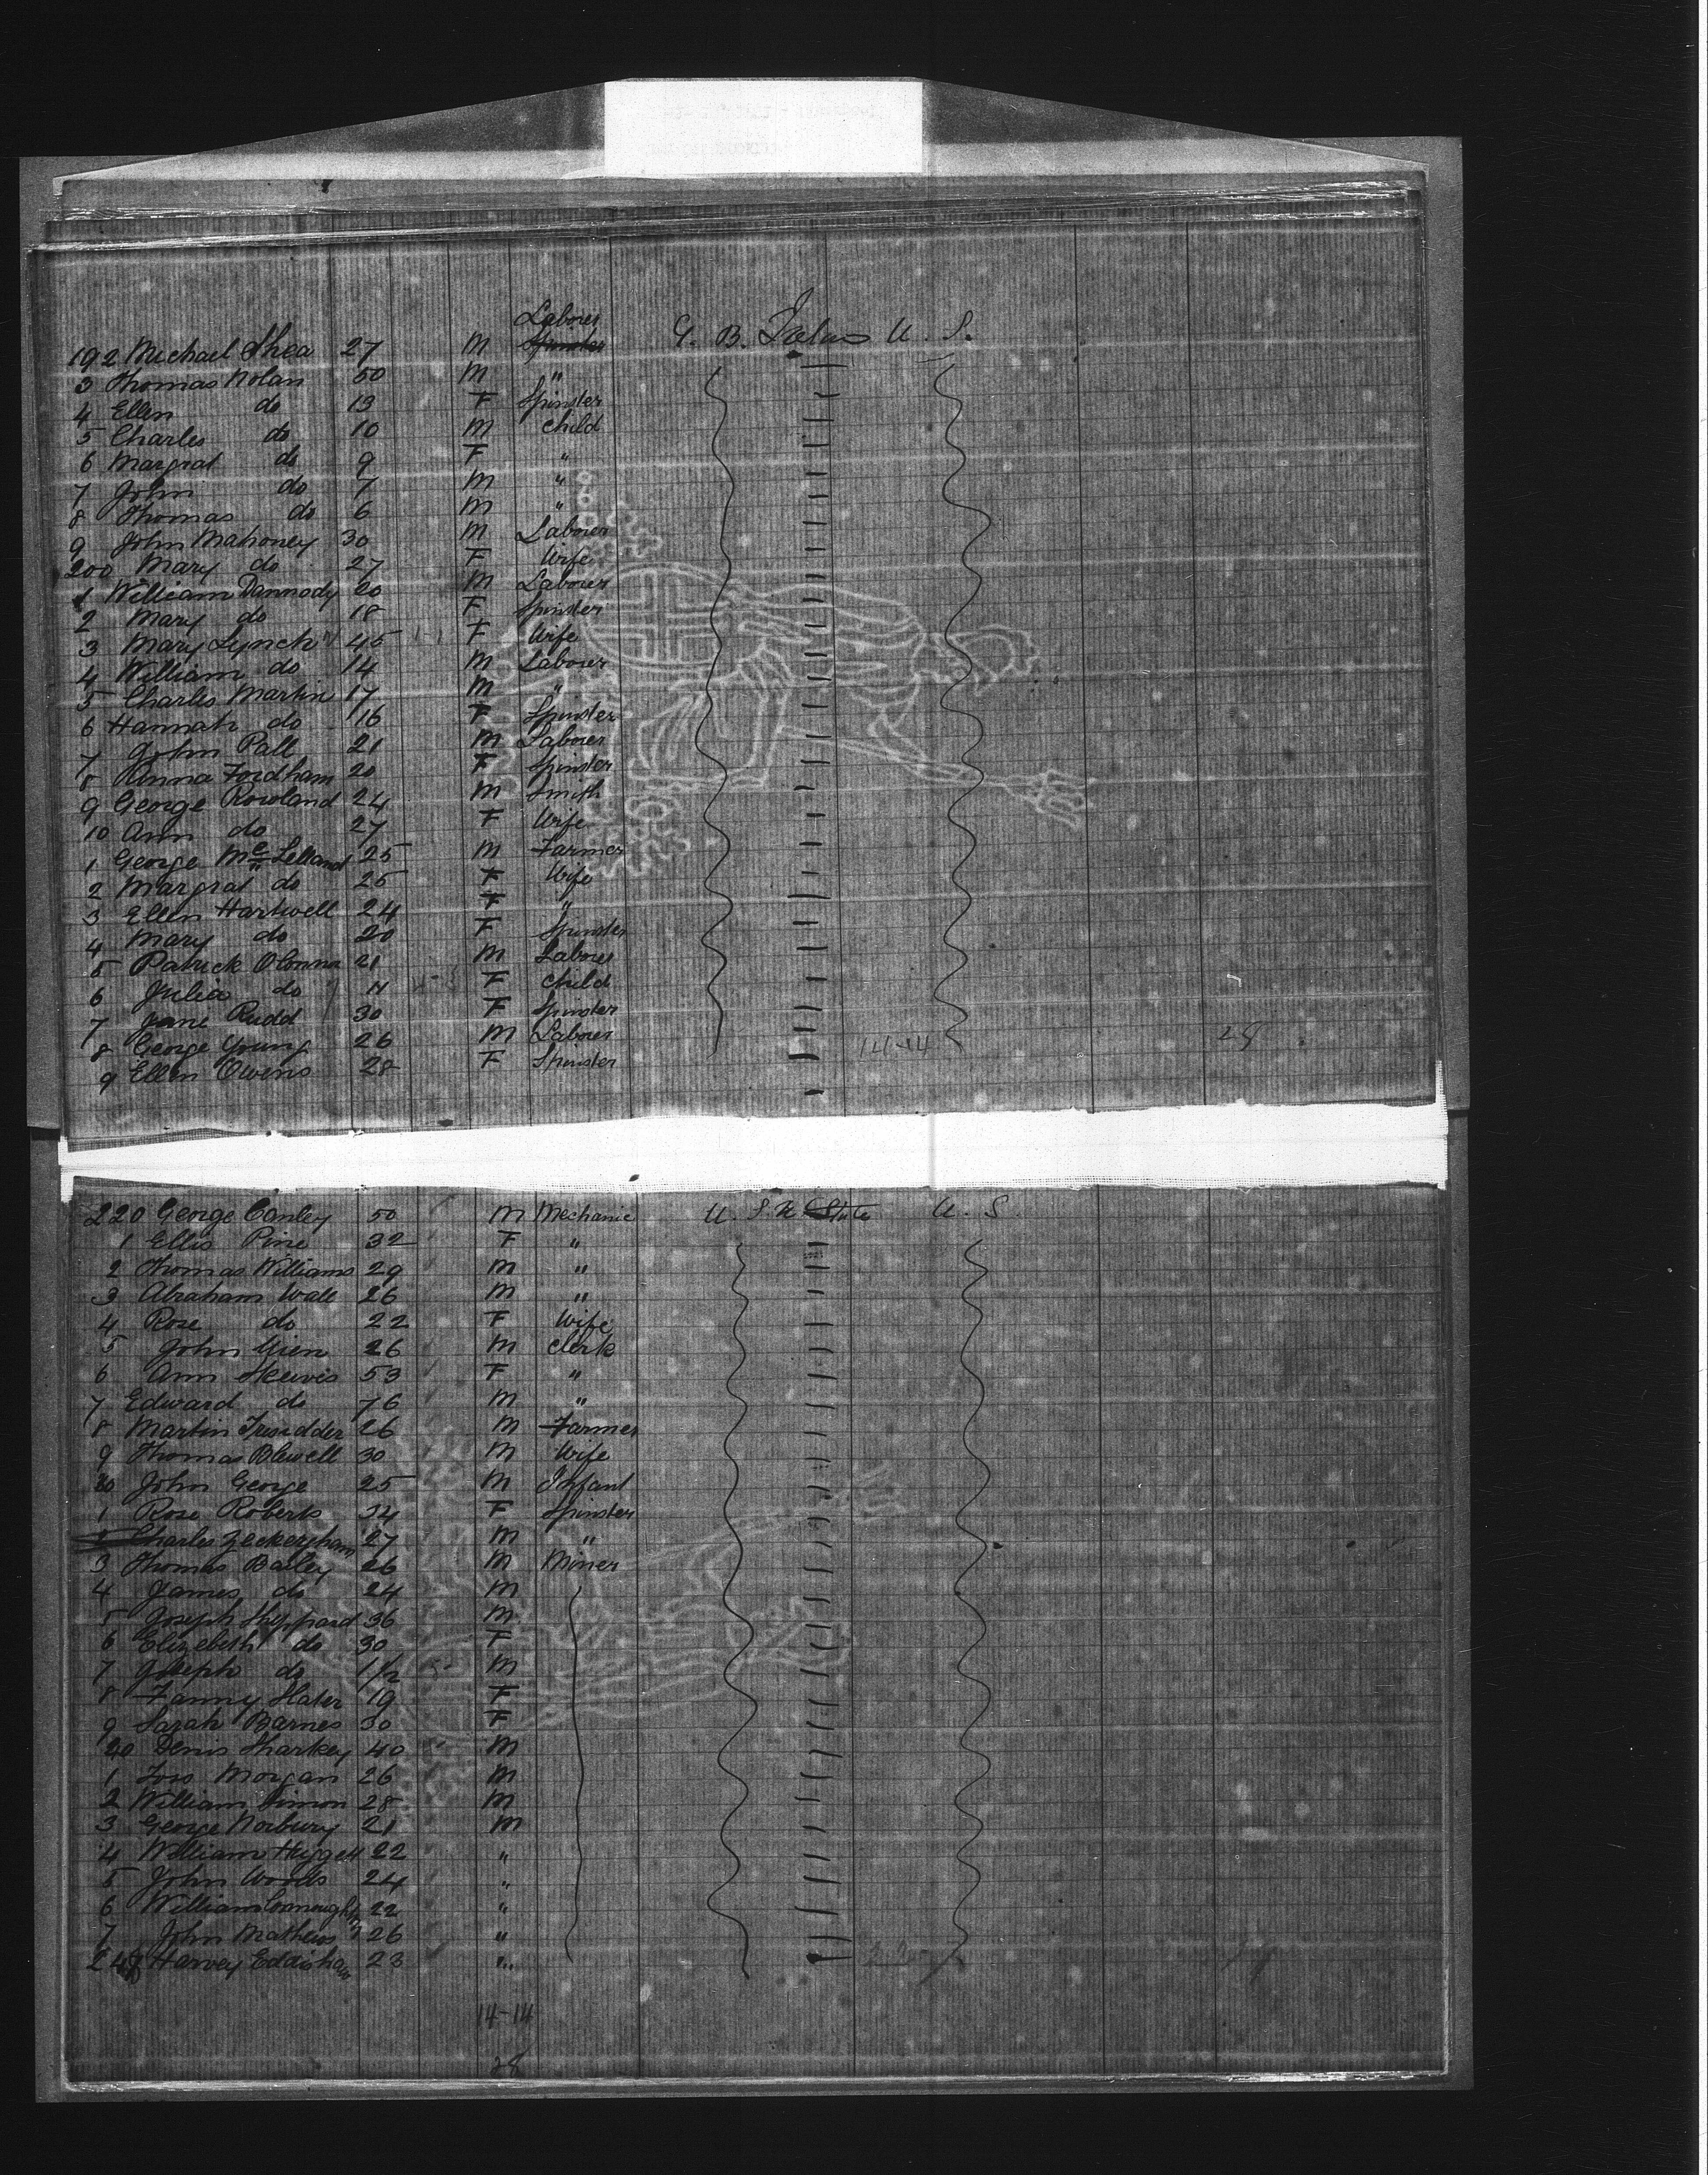 192 Michael Shea 27 M Laborer G. B. Ireland U. S.
3 Thomas Nolan 50 M "
4 Ellen do 13 F Spinster
5 Charles do 10 M Child
6 Margrat do 9 F "
7 John do 7 M "
8 Thomas do 6 M "
9 John Mahoney 30 M Laborer
200 Mary do 27 F Wife
1 William Dannody 20 M Laborer
2 Mary do 18 F Spinster
3 Mary Lynch 45 F Wife
4 William do 14 M Laborer
5 Charles Martin 17 M "
6 Hannah do 16 F Spinster
7 John Pall 21 M Laborer
8 Anna Fordham 20 F Spinster
9 George Rowland 24 M Smith
10 Ann do 27 F Wife
1 George McLelland 25 M Farmer
2 Margrat do 25 F Wife
3 Ellen Hartwell 24 F "
4 Mary do 20 F Spinster
5 Patrick OConna 21 M Laborer
6 Julia do 11 F Child
7 Jane Rudd 30 F Spinster
8 George Young 26 M Laborer 14-14 28
9 Ellen Owens 28 F Spinster
220 George Canley 50 M Mechanic U. S. U. S.
1 Ellis Pine 32 F "
2 Thomas Williams 29 M "
3 Abraham Wall 26 M "
4 Rose do 22 F Wife
5 John 26 M Clerk
6 Ann Skewis 53 F "
7 Edward do 76 M "
8 Martin Tresidder 26 M Farmer
9 Thomas Blewell 30 M Wife
30 John George 25 M Infant
1 Rose Roberts 34 F Spinster
Charles 27 M "
3 Thomas Bailey 26 M Miner
4 James do 24 M
5 Joseph Sheppard 36 M
6 Elizebeth do 30 F
7 Joseph do 1/2 M
8 Fanny Slater 19 F
9 Sarah Barnes 30 F
40 Denis Sharkey 40 M
1 Morgan 26 M
2 William Simon 28 M
3 George Norbury 21 M
4 William 22 "
5 John Woods 24 "
6 William 22 "
7 John Mathews 26 "
248 Harvey 23 "
14-14
28